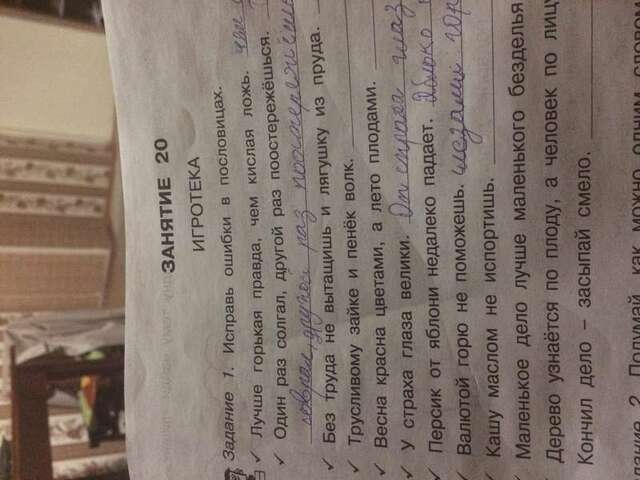 ЗАНЯТИЕ 20
ИГРОТЕКА
Задание 1. Исправь ошибки в пословицах.
✓ Лучше горькая правда, чем кислая ложь. чем
✓ Один раз солгал, другой раз поостережёшься.
соврал, другой раз
✓ Без труда не вытащишь и лягушку из пруда.
✓ Трусливому зайке и пенёк волк.
✓ Весна красна цветами, а лето плодами.
✓ У страха глаза велики. От страха глаз
✓ Персик от яблони недалеко падает. Яблоко
✓ Валютой горю не поможешь. слезами гор
✓ Кашу маслом не испортишь.
✓ Маленькое дело лучше маленького безделья
Дерево узнаётся по плоду, а человек по лицу
Кончил дело – засыпай смело.
дание 2. Подумай, как можно одним словом